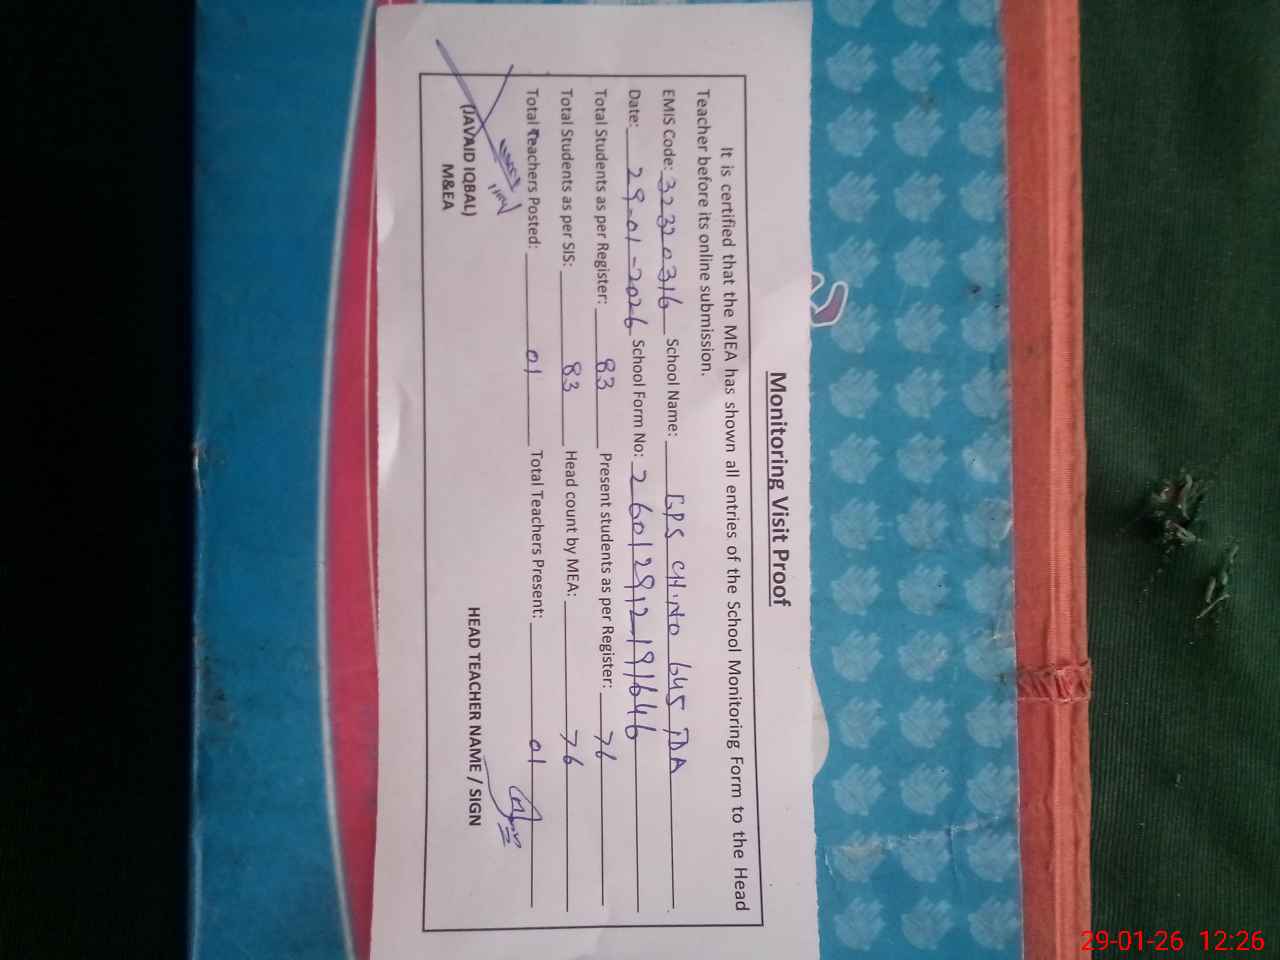 Monitoring Visit Proof
It is certified that the MEA has shown all entries of the School Monitoring Form to the Head
Teacher before its online submission.
EMIS Code: 32320316 School Name: GPS CH.NO 645 TDA
Date: 29-01-2026 School Form No: 26012912191646
Total Students as per Register: 83 Present students as per Register: 76
Total Students as per SIS: 83 Head count by MEA: 76
Total Teachers Posted: 01 Total Teachers Present: 01
(JAVAID IQBAL)
M&EA
HEAD TEACHER NAME / SIGN
29-01-26 12:26